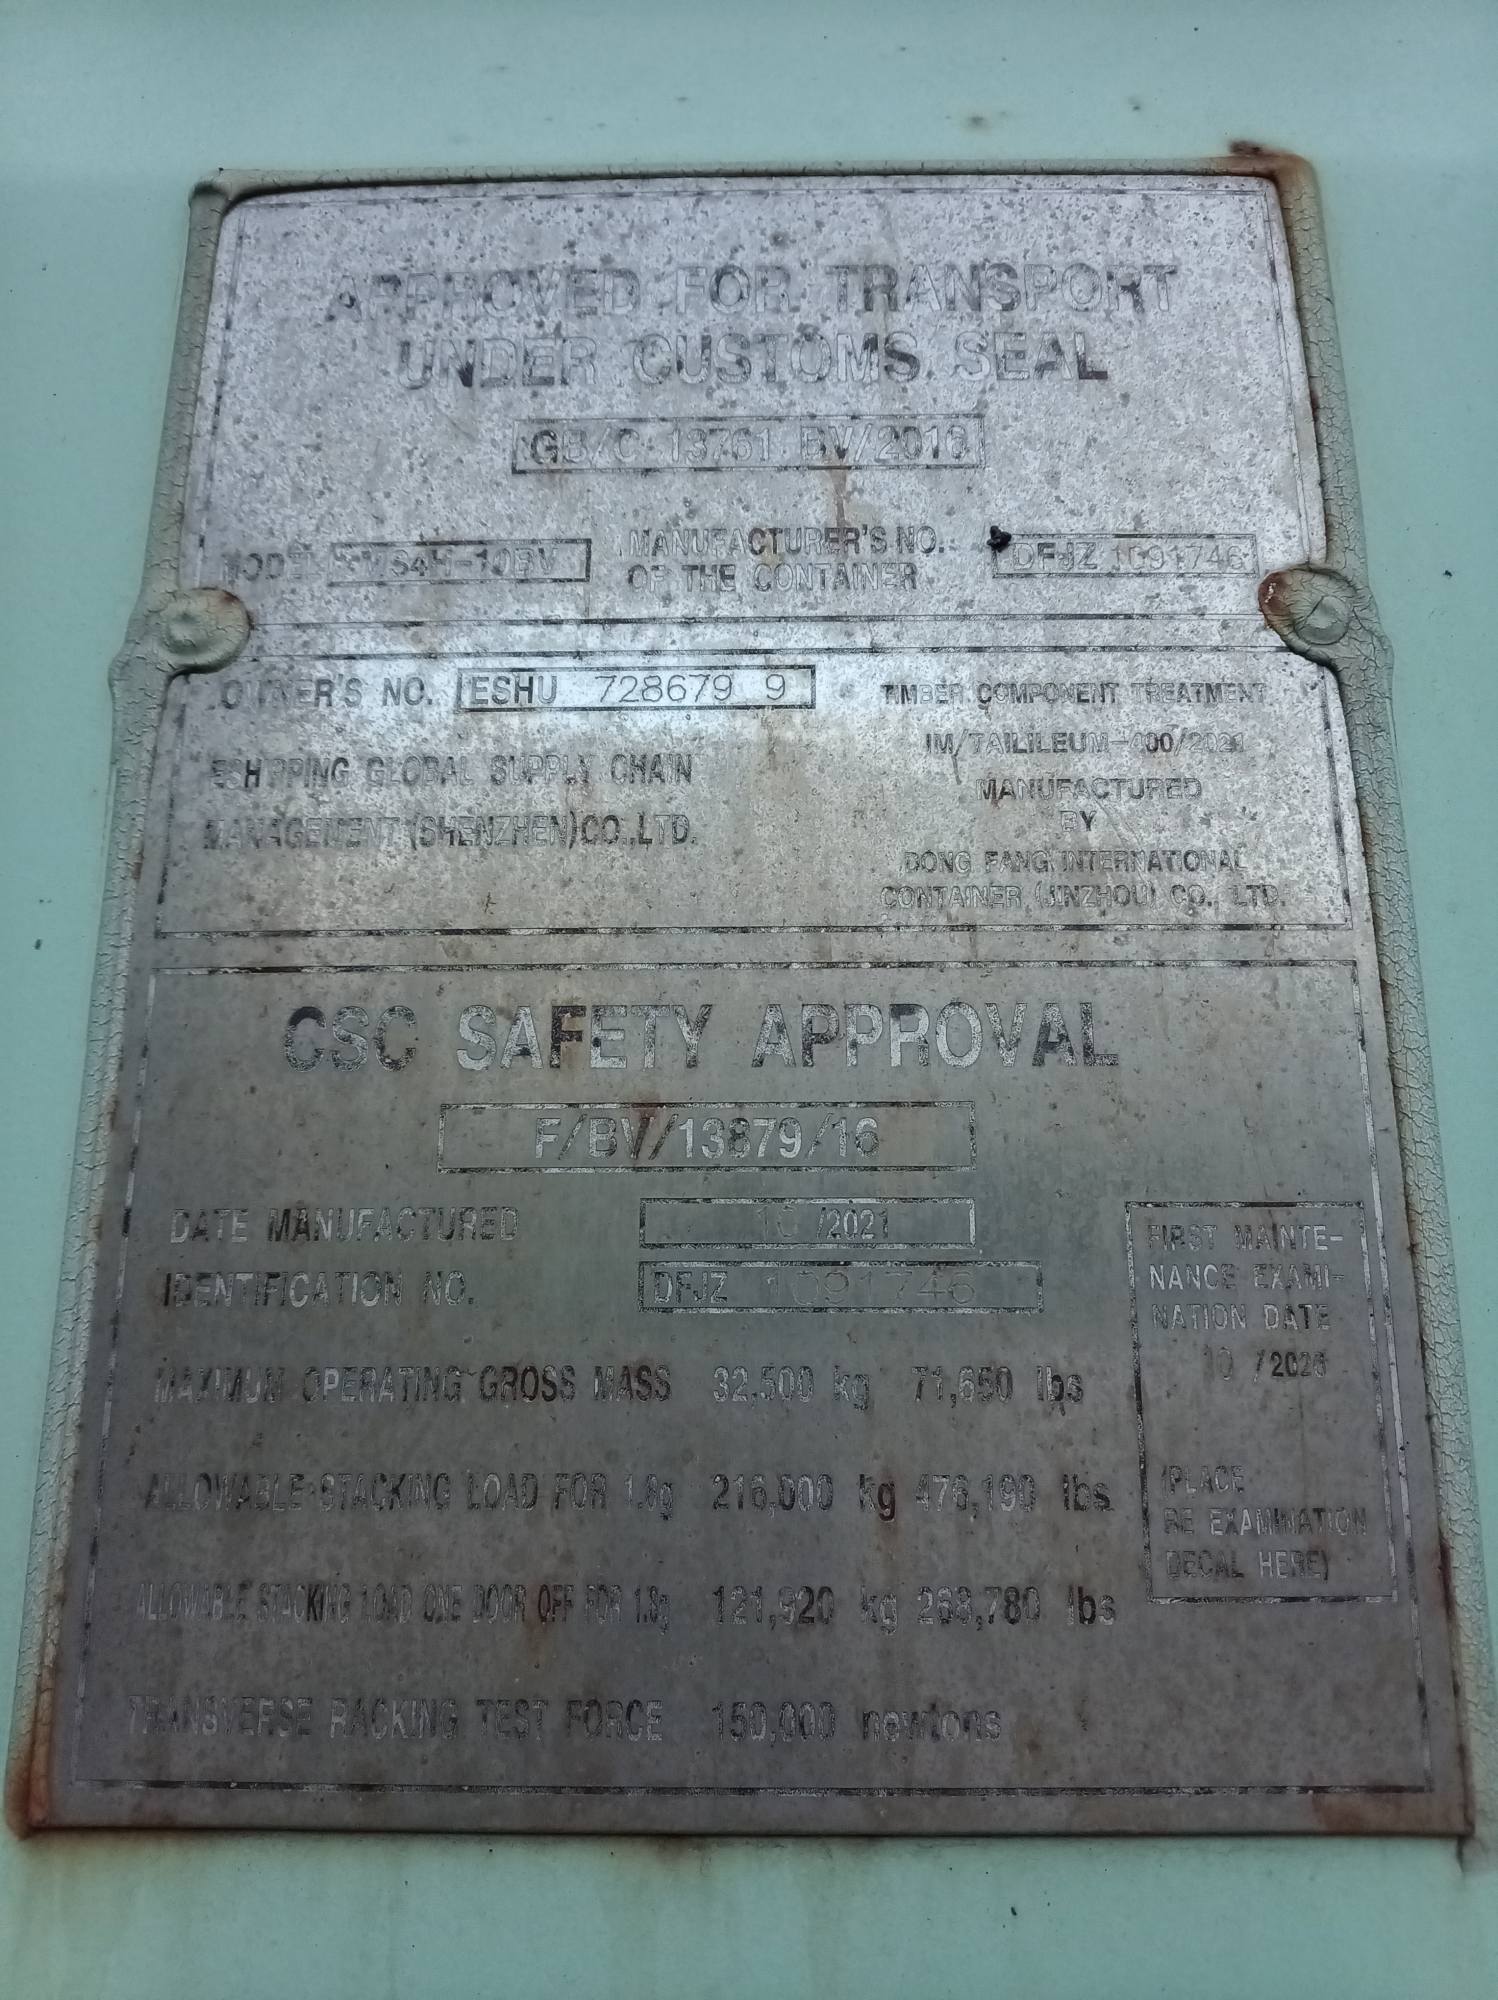 APPROVED FOR TRANSPORT
UNDER CUSTOMS SEAL
GB/C 13761 BV/2016
MODEL
MANUFACTURER'S NO.
OF THE CONTAINER
DFJZ 1091746
OWNER'S NO. ESHU 728679 9
ESHIPPING GLOBAL SUPPLY CHAIN
MANAGEMENT (SHENZHEN)CO.,LTD.
TIMBER COMPONENT TREATMENT
IM/TAILILEUM-400/2021
MANUFACTURED
BY
DONG FANG INTERNATIONAL
CONTAINER (JINZHOU) CO., LTD.
CSC SAFETY APPROVAL
F/BV/13879/16
DATE MANUFACTURED 10 /2021
IDENTIFICATION NO. DFJZ 1091746
MAXIMUM OPERATING GROSS MASS 32,500 kg 71,650 lbs
ALLOWABLE STACKING LOAD FOR 1.8g 216,000 kg 476,190 lbs
ALLOWABLE STACKING LOAD ONE DOOR OFF FOR 1.8g 121,920 kg 268,780 lbs
TRANSVERSE RACKING TEST FORCE 150,000 newtons
FIRST MAINTE-
NANCE EXAMI-
NATION DATE
10 /2026
(PLACE
RE EXAMINATION
DECAL HERE)